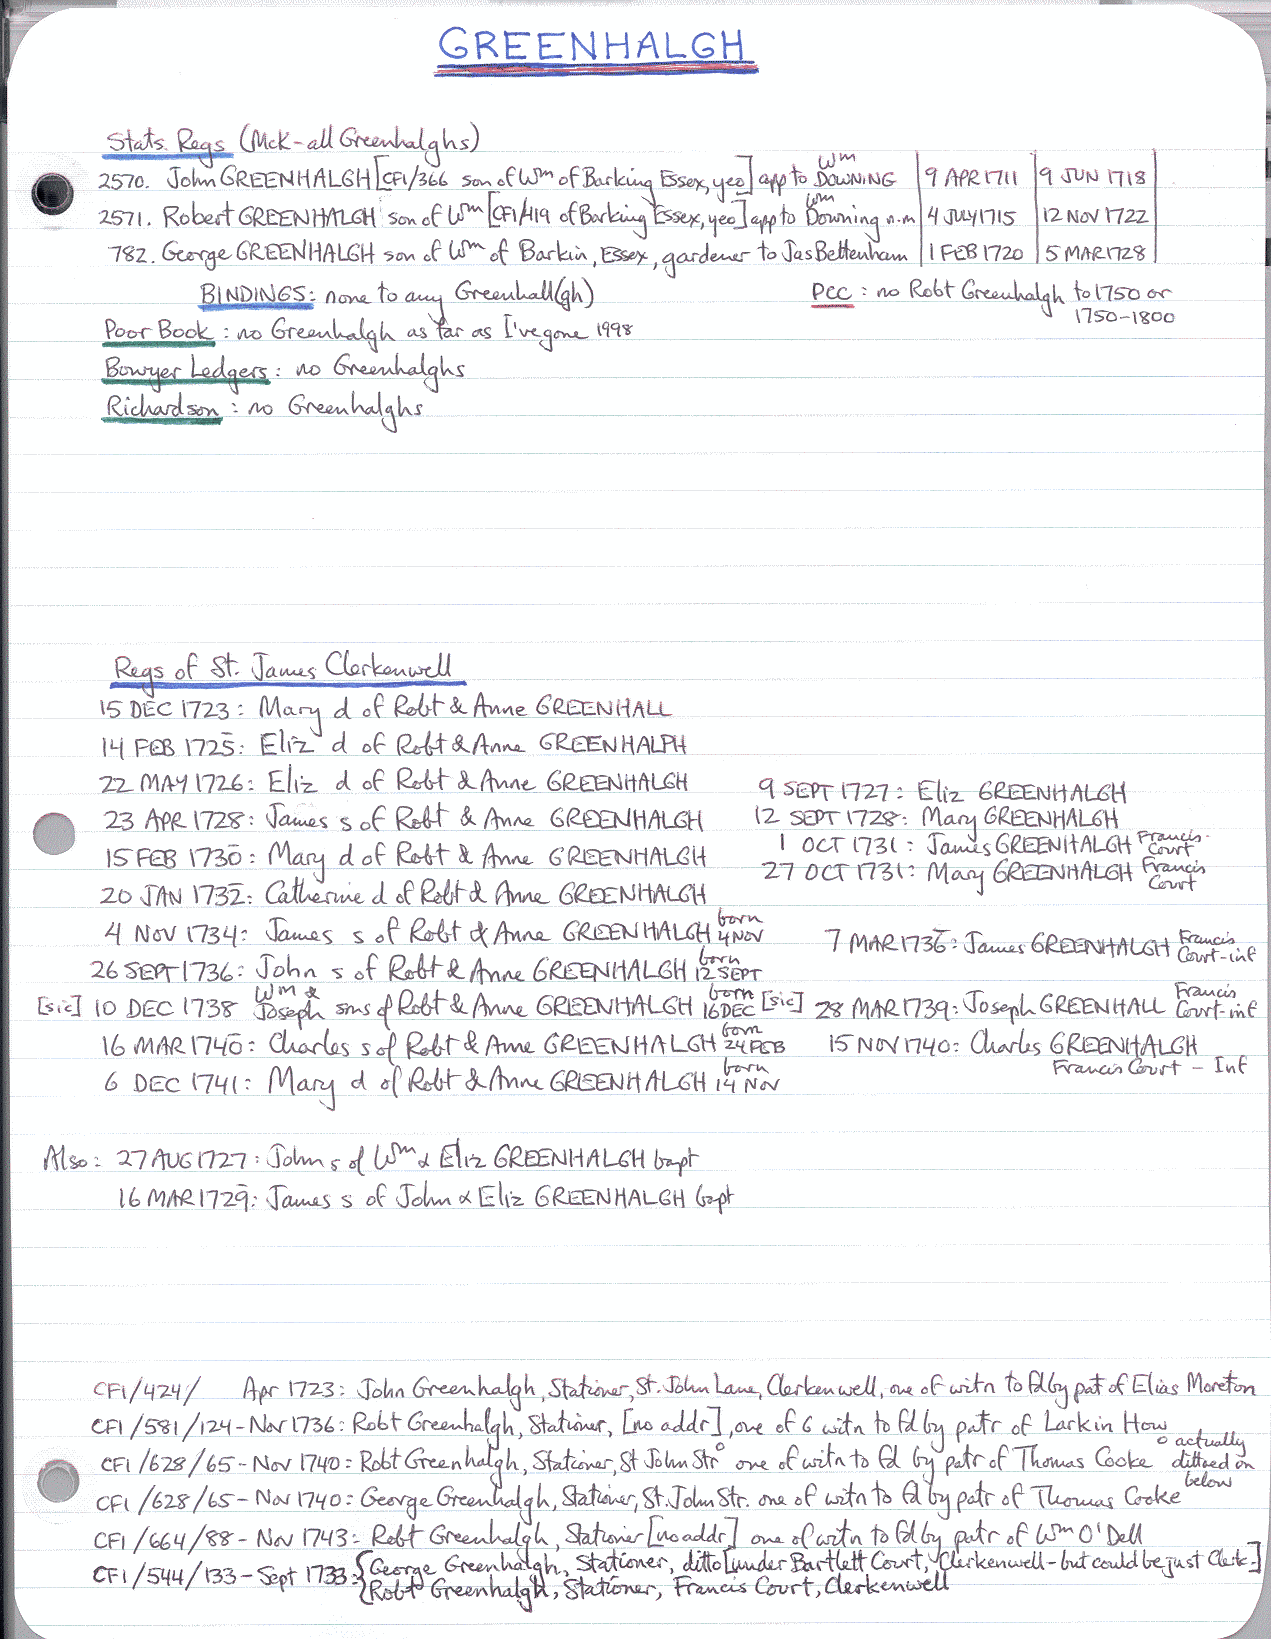 GREENHALGH
Stats. Regs (McK - all Greenhalghs)
2570. John GREENHALGH [CF1/366 son of Wm of Barking Essex, yeo] app to Wm DOWNING 9 APR 1711 9 JUN 1718
2571. Robert GREENHALGH son of Wm [CF1/419 of Barking Essex, yeo] app to Wm Downing n.m 4 JULY 1715 12 NOV 1722
782. George GREENHALGH son of Wm of Barkin, Essex, gardener to Jas Bettenham 1 FEB 1720 5 MAR 1728
BINDINGS: none to any Greenhall(gh)
PCC: no Robt Greenhalgh to 1750 or
1750-1800
Poor Book: no Greenhalgh as far as I've gone 1998
Bowyer Ledgers: no Greenhalghs
Richardson: no Greenhalghs
Regs of St. James Clerkenwell
15 DEC 1723: Mary d of Robt & Anne GREENHALL
14 FEB 1725: Eliz d of Robt & Anne GREENHALPH
22 MAY 1726: Eliz d of Robt & Anne GREENHALGH
9 SEPT 1727: Eliz GREENHALGH
23 APR 1728: James s of Robt & Anne GREENHALGH
12 SEPT 1728: Mary GREENHALGH
1 OCT 1731: James GREENHALGH Francis Court
15 FEB 1730: Mary d of Robt & Anne GREENHALGH
27 OCT 1731: Mary GREENHALGH Francis Court
20 JAN 1732: Catherine d of Robt & Anne GREENHALGH
4 NOV 1734: James s of Robt & Anne GREENHALGH born 4 NOV
7 MAR 1736: James GREENHALGH Francis Court-inf
26 SEPT 1736: John s of Robt & Anne GREENHALGH born 12 SEPT
[sic] 10 DEC 1738 Wm & Joseph sons of Robt & Anne GREENHALGH born 16 DEC [sic]
28 MAR 1739: Joseph GREENHALL Francis Court-inf
16 MAR 1740: Charles s of Robt & Anne GREENHALGH born 24 FEB
15 NOV 1740: Charles GREENHALGH
Francis Court - Inf
6 DEC 1741: Mary d of Robt & Anne GREENHALGH born 14 NOV
Also: 27 AUG 1727: John s of Wm & Eliz GREENHALGH bapt
16 MAR 1729: James s of John & Eliz GREENHALGH bapt
CF1/424/ Apr 1723: John Greenhalgh, Stationer, St. John Lane, Clerkenwell, one of witn to fd by pat of Elias Moreton
CF1/581/124 - Nov 1736: Robt Greenhalgh, Stationer, [no addr], one of 6 witn to fd by patr of Larkin How
CF1/628/65 - Nov 1740: Robt Greenhalgh, Stationer, St John Str° one of witn to fd by patr of Thomas Cooke ° actually dittoed on below
CF1/628/65 - Nov 1740: George Greenhalgh, Stationer, St. John Str. one of witn to fd by patr of Thomas Cooke
CF1/664/88 - Nov 1743: Robt Greenhalgh, Stationer [no addr] one of witn to fd by patr of Wm O'Dell
CF1/544/133 - Sept 1733: { George Greenhalgh, Stationer, ditto [under Bartlett Court, Clerkenwell - but could be just Clerk.]
{ Robt Greenhalgh, Stationer, Francis Court, Clerkenwell